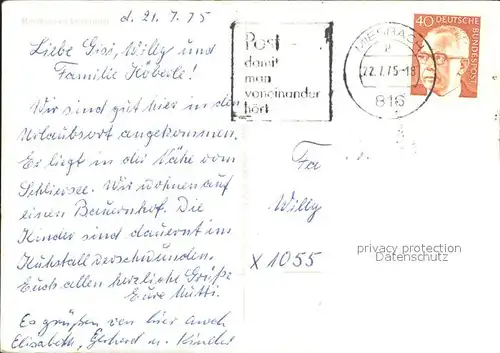 d. 21.7.75
Liebe Gisi, Willy und
Familie Köberle!
Wir sind gut hier in den
Urlaubsort angekommen.
Er liegt in der Nähe vom
Schliersee. Wir wohnen auf
einen Bauernhof. Die
Kinder sind dauernd im
Kuhstall verschwunden.
Euch allen herzliche Grüße
Eure Mutti.
Es grüßen von hier auch
Elisabeth, Gerhard u. Kinder
Post
damit
man
voneinander
hört
MIESBACH
22.7.75-18
816
40 DEUTSCHE
BUNDESPOST
Fa
Willy
X 1055
privacy protection
Datenschutz